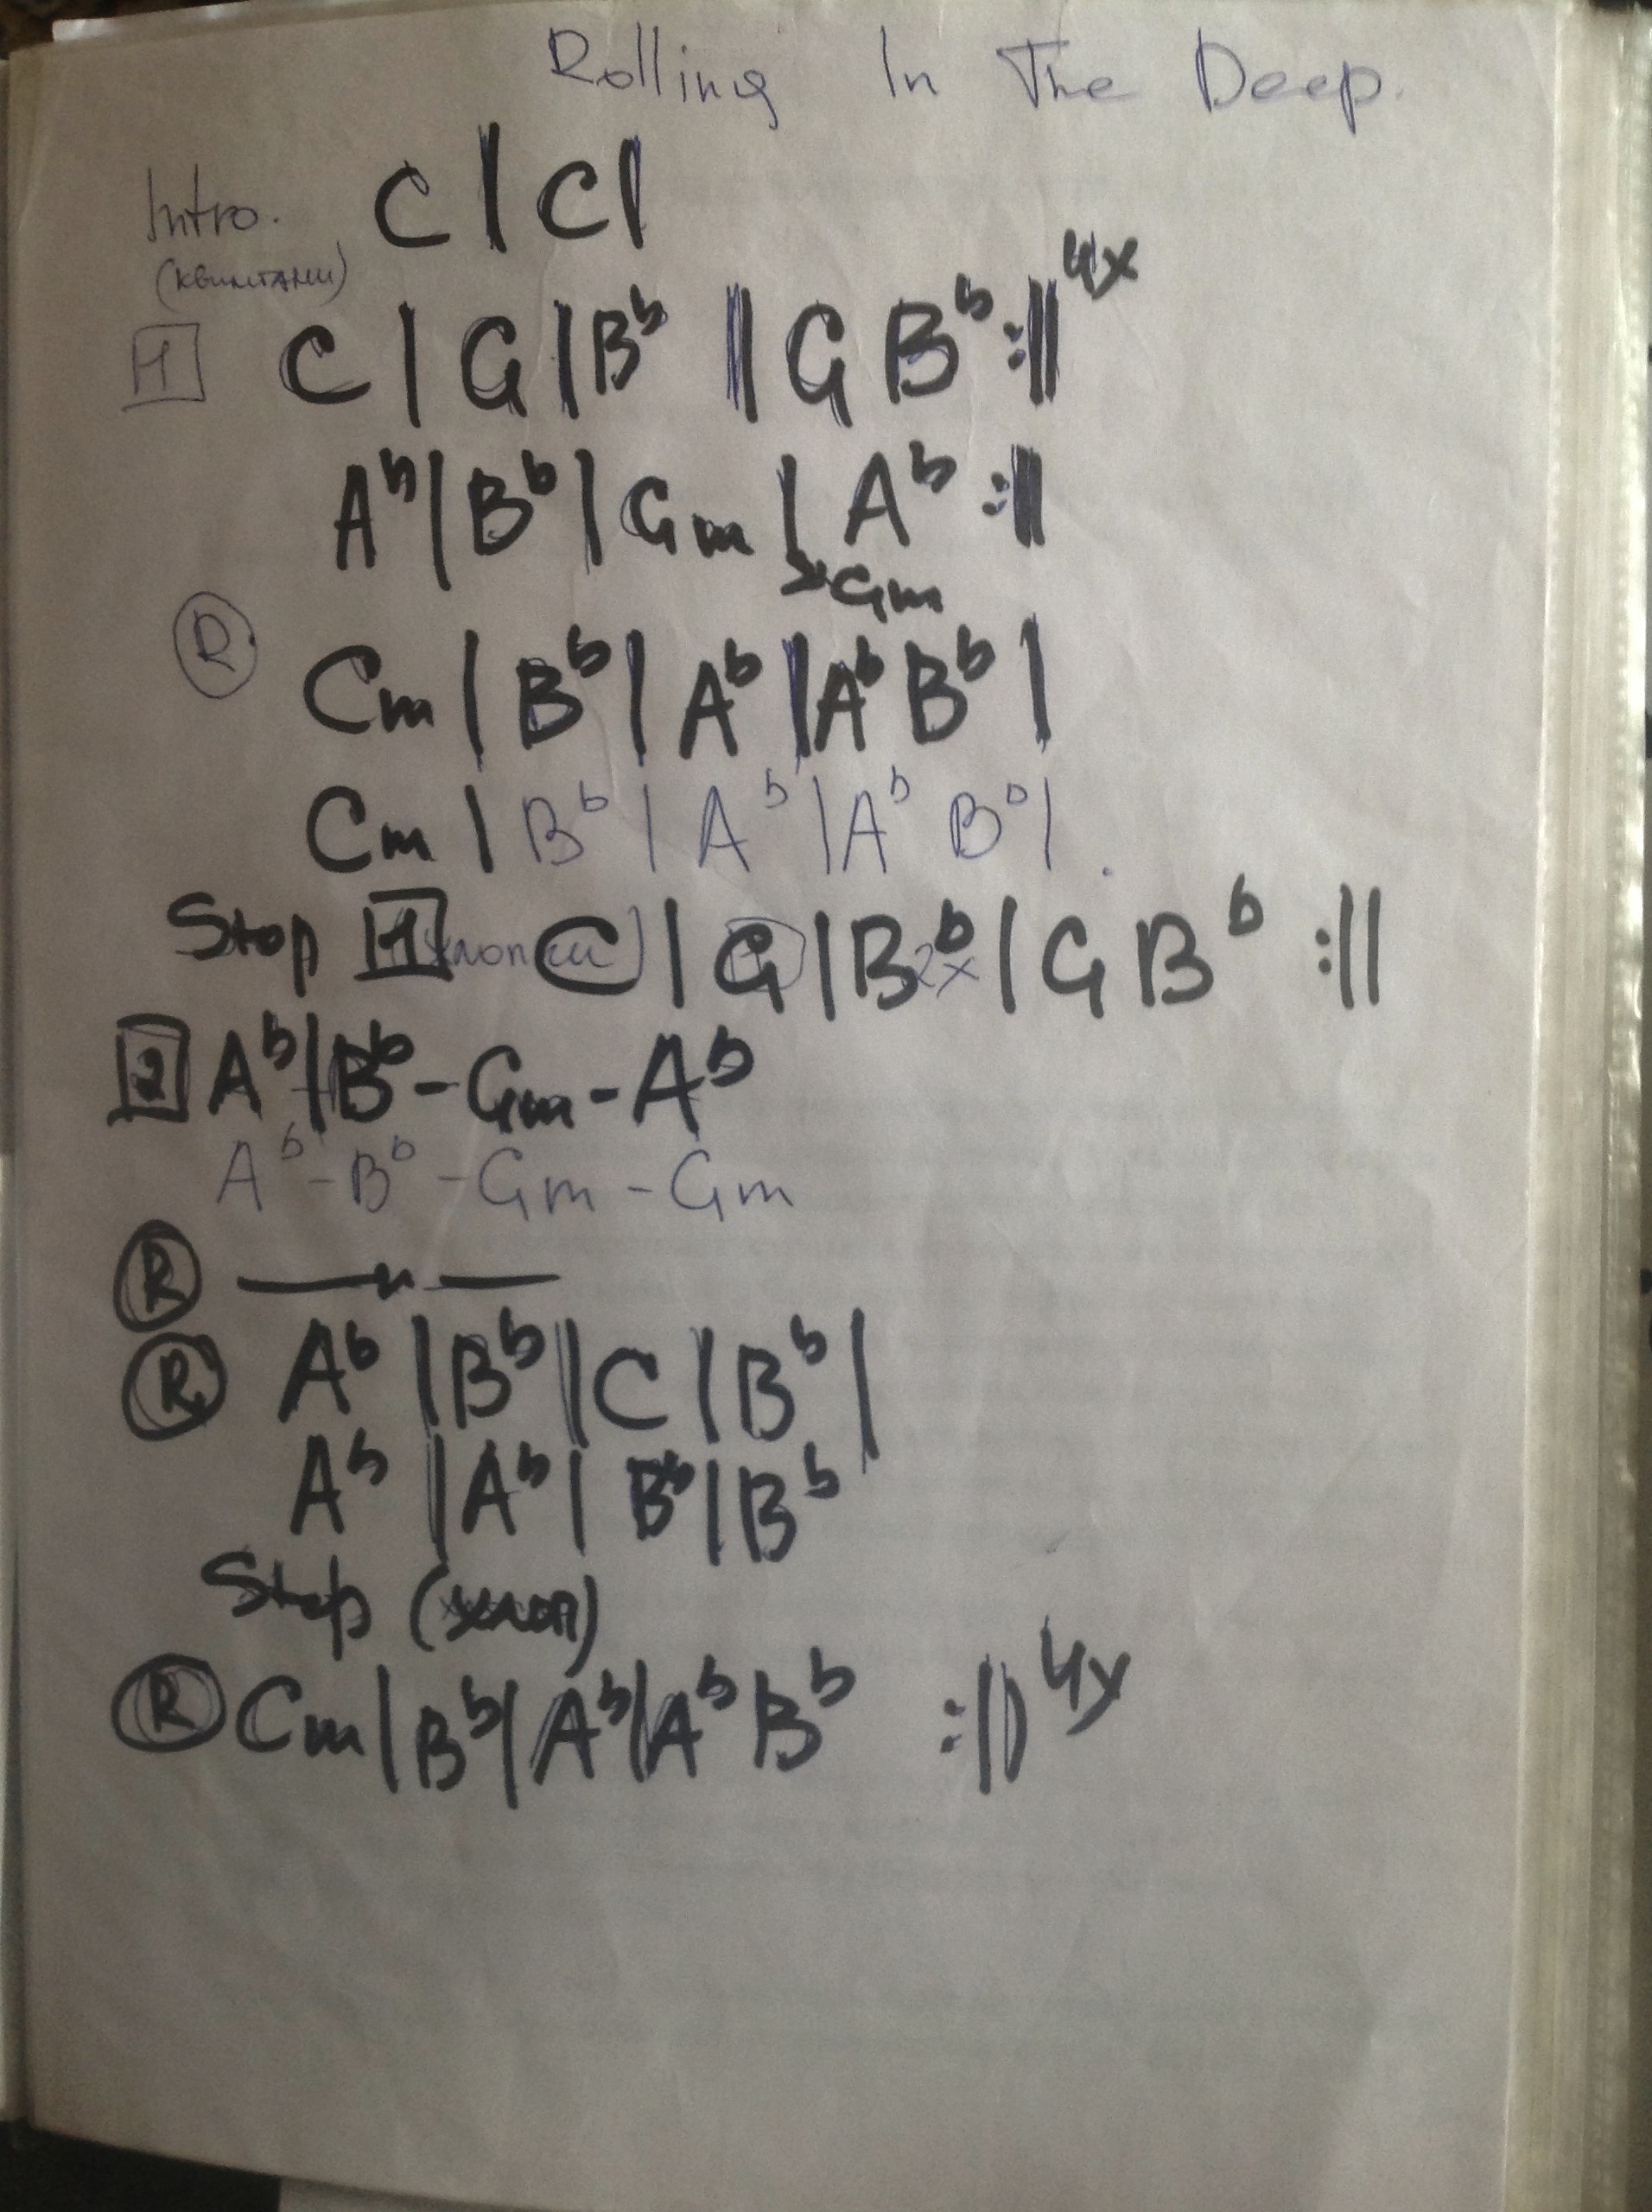 Rolling In The Deep.
Intro. C | C |
(квинтами)
1 C | G | B♭ || G B♭ :|| 4x
A♭ | B♭ | Gm | A♭ :||
Gm
R
Cm | B♭ | A♭ | A♭ B♭ |
Cm | B♭ | A♭ | A♭ B♭ | .
Stop 1 C | G | B♭ | G B♭ :||
2 A♭ | B♭ - Gm - A♭
A♭ - B♭ - Gm - Gm
R — " —
R A♭ | B♭ | C | B♭ |
A♭ | A♭ | B♭ | B♭
Stop (хлоп)
R Cm | B♭ | A♭ | A♭ B♭ :|| 4x